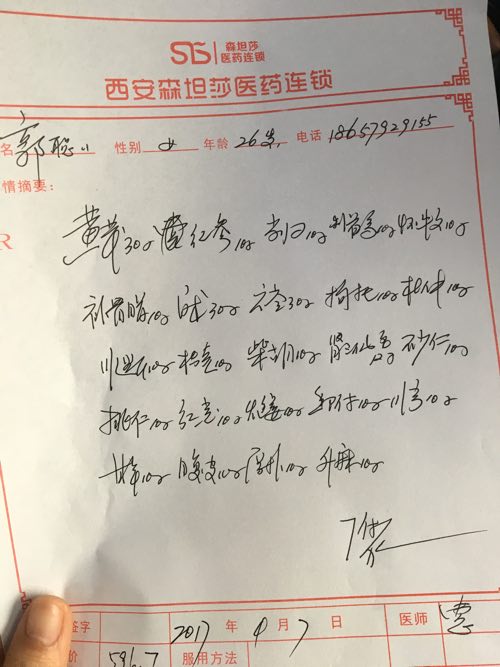 STS 森坦莎
医药连锁
西安森坦莎医药连锁
名 郭聪 性别 女 年龄 26岁 电话 18657929155
情摘要：
R
黄芪30g 红参10g 当归10g 制首乌10g 怀牛10g
补骨脂10g 白术30g 30g 枸杞10g 杜仲10g
川断10g 桔壳10g 柴胡10g 砂仁10g
桃仁10g 红花10g 10g 10g 川芎10g
10g 腹皮10g 厚朴10g 升麻10g
7付
签字 2017 年 月 7 日 医师
价 596.7 服用方法